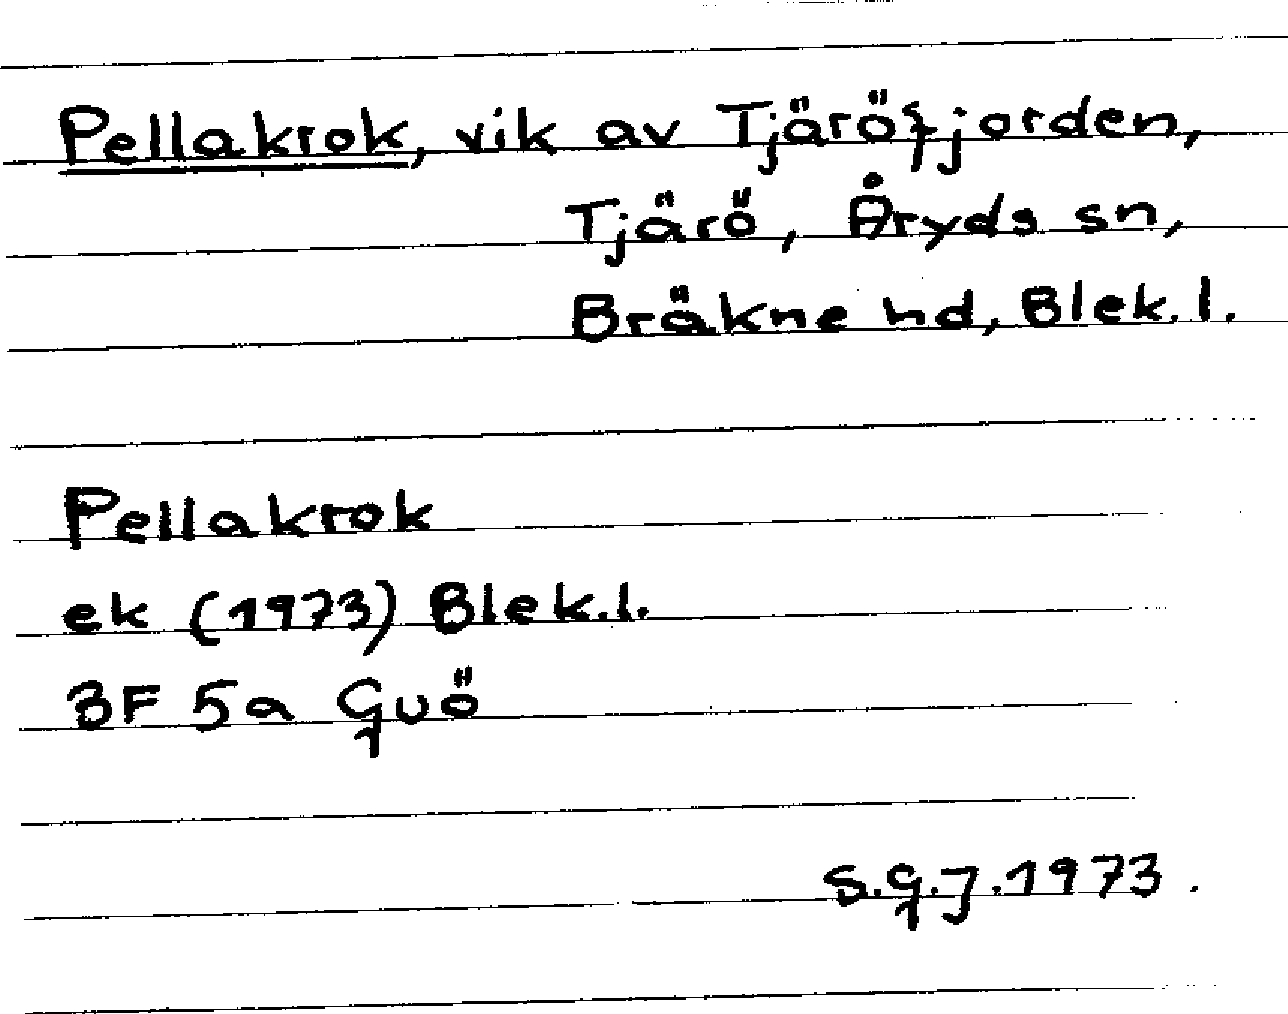 Pellakrok, vik av Tjäröfjorden,
Tjärö, Åryds sn,
Bräkne hd, Blek. l.
Pellakrok
ek (1973) Blek.l.
3F 5a Guö
S.G.J.1973.